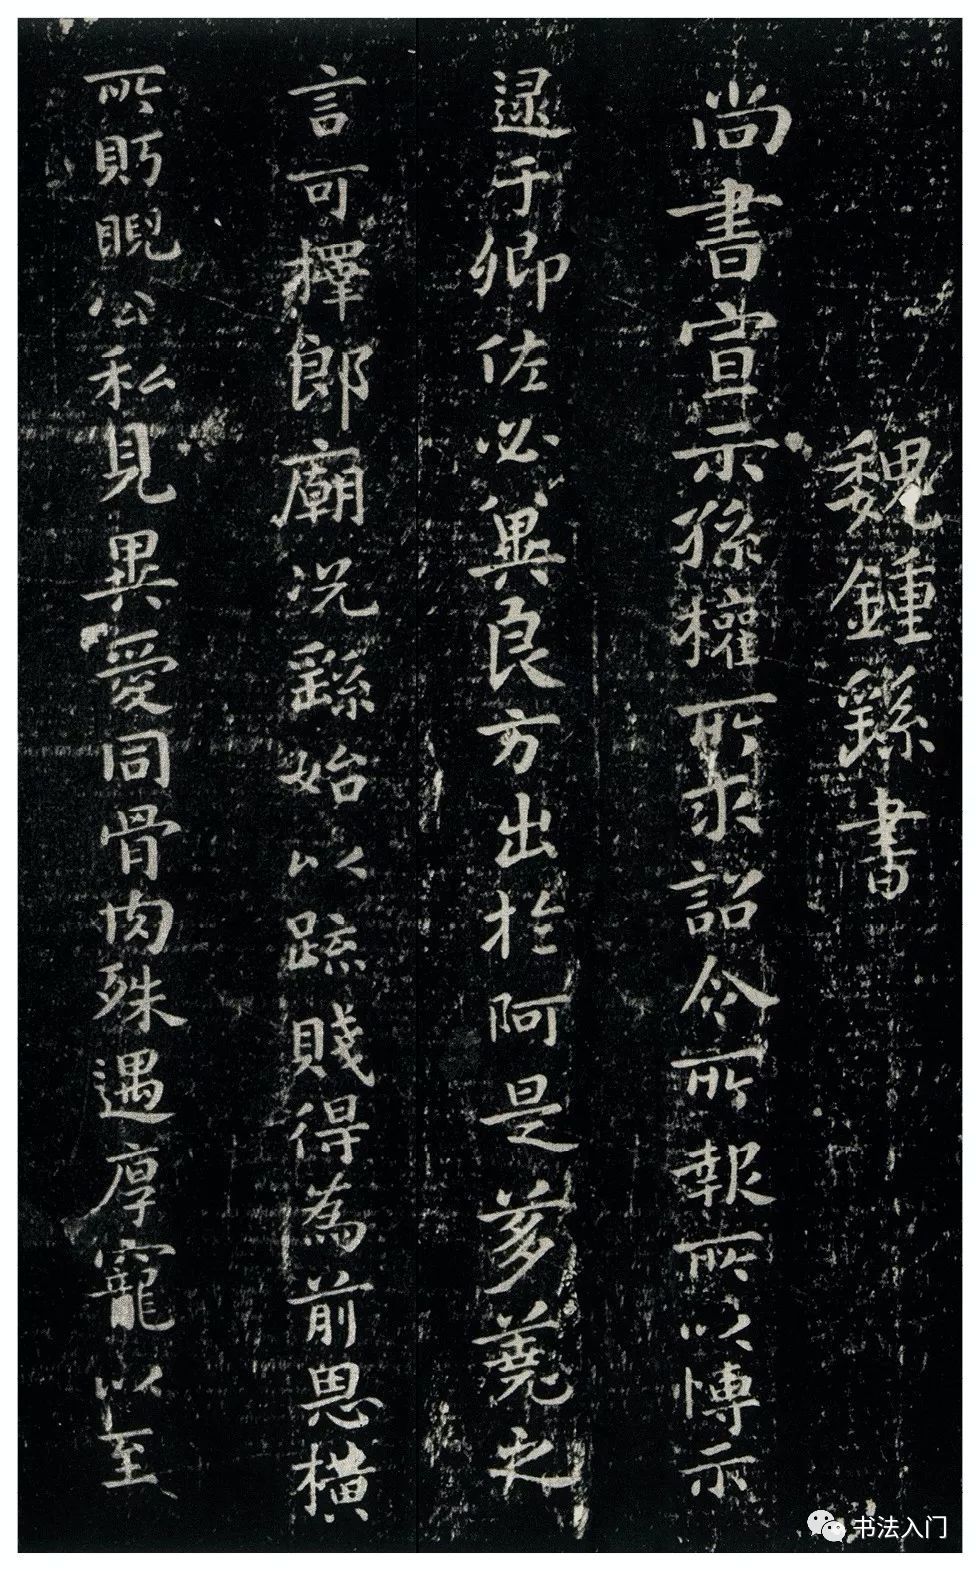 魏鍾繇書
尚書宣示孫權所求詔令所報所以博示
逮于卿佐必冀良方出於阿是芻蕘之
言可擇郎廟況繇始以疏賤得為前恩橫
所眄睨公私見異愛同骨肉殊遇厚寵以至
书法入门